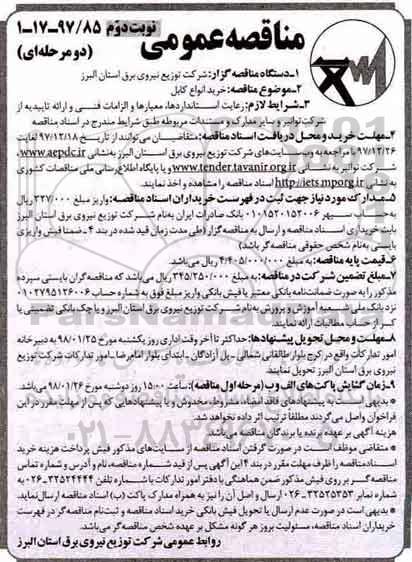 نوبت دوم ۹۷/۸۵-۱۷-۱
مناقصه عمومی
(دو مرحله‌ای)
۱-دستگاه مناقصه گزار: شرکت توزیع نیروی برق استان البرز
۲-موضوع مناقصه: خرید انواع کابل
۳-شرایط لازم: رعایت استانداردها، معیارها و الزامات فنی و ارائه تاییدیه از
شرکت توانیر و سایر مدارک و مستندات مربوطه طبق شرایط مندرج در اسناد مناقصه
۴-مهلت خرید و محل دریافت اسناد مناقصه: متقاضیان می‌توانند از تاریخ ۹۷/۱۲/۱۸ لغایت
۹۷/۱۲/۲۶ با مراجعه به وب سایت‌های شرکت توزیع نیروی برق استان البرز به‌نشانی www.aepdc.ir،
شرکت توانیر به نشانی www.tender.tavanir.org.ir و یا پایگاه اطلاع رسانی ملی مناقصات کشوری
به نشانی http://iets.mporg.ir اسناد مناقصه را مشاهده و اخذ نمایند.
۵-مدارک مورد نیاز جهت ثبت در فهرست خریداران اسناد مناقصه: واریز مبلغ ۳۲۷/۰۰۰ ریال
به حساب سپهر ۰۱۰۱۹۵۲۰۱۵۲۰۰۶ بانک صادرات ایران به‌نام شرکت توزیع نیروی برق استان البرز
بابت خریداری اسناد مناقصه و ارسال به مناقصه گزار (طی مدت زمان قید شده در بند ۴-ضمنا فیش واریزی
بایستی به‌نام شخص حقوقی مناقصه‌گر باشد)
۶-قیمت پایه مناقصه: به مبلغ ۴/۴۰۵/۰۰۰/۰۰۰ ریال می‌باشد.
۷-مبلغ تضمین شرکت در مناقصه: به مبلغ ۲۴۵/۲۵۰/۰۰۰ ریال می‌باشد که مناقصه‌گران بایستی سپرده
مذکور را به صورت ضمانت‌نامه بانکی معتبر یا فیش بانکی واریز مبلغ فوق به شماره حساب ۰۱۰۲۷۹۵۱۳۶۰۰۶
نزد بانک ملی شعبه آموزش و پرورش به‌نام شرکت توزیع نیروی برق استان البرز و یا چک بانکی تضمینی یا
کسر از حساب مطالبات ارائه نمایند.
۸-مهلت و محل تحویل پیشنهادها: حداکثر تا آخر وقت اداری روز یکشنبه مورخ ۹۸/۰۱/۲۵ به دبیرخانه
امور تدارکات واقع در کرج بلوار طالقانی شمالی-پل آزادگان-ابتدای بلوار امام رضا-امور تدارکات شرکت توزیع
نیروی برق استان البرز تحویل نمایند.
۹-زمان گشایش پاکت‌های الف و ب (مرحله اول مناقصه): ساعت ۱۵:۰۰ روز دوشنبه مورخ ۹۸/۰۱/۲۶ می‌باشد.
* بدیهی است به پیشنهادهای فاقد امضاء، مشروط، مخدوش و یا پیشنهادهایی که پس از مهلت مقرر در این
فراخوان واصل می‌گردند مطلقا ترتیب اثر داده نخواهد شد.
هزینه آگهی بر عهده برنده یا برندگان مناقصه می‌باشد.
* متقاضی موظف است در صورت گرفتن اسناد مناقصه از سایت‌های مذکور فیش پرداخت هزینه خرید
اسناد مناقصه را ظرف مهلت مقرر در بند ۴ این آگهی پس از قید شماره مناقصه، نام و آدرس و شماره تماس
مناقصه‌گر بر روی فیش مذکور ضمن هماهنگی با دفتر امور تدارکات با شماره تلفن ۳۲۵۲۴۴۴۴-۰۲۶ به
شماره نمابر ۳۲۵۲۵۳۵۳-۰۲۶ ارسال و اصل آن را نیز به همراه مدارک پاکت (ب) اسناد مناقصه ارسال نماید.
* بدیهی است در صورت عدم ارسال یا تحویل فیش بانکی خرید اسناد مناقصه و ثبت نام مناقصه‌گر در فهرست
خریداران اسناد مناقصه، مسئولیت بروز هر گونه مشکل بر عهده شخص مناقصه‌گر می‌باشد.
روابط عمومی شرکت توزیع نیروی برق استان البرز